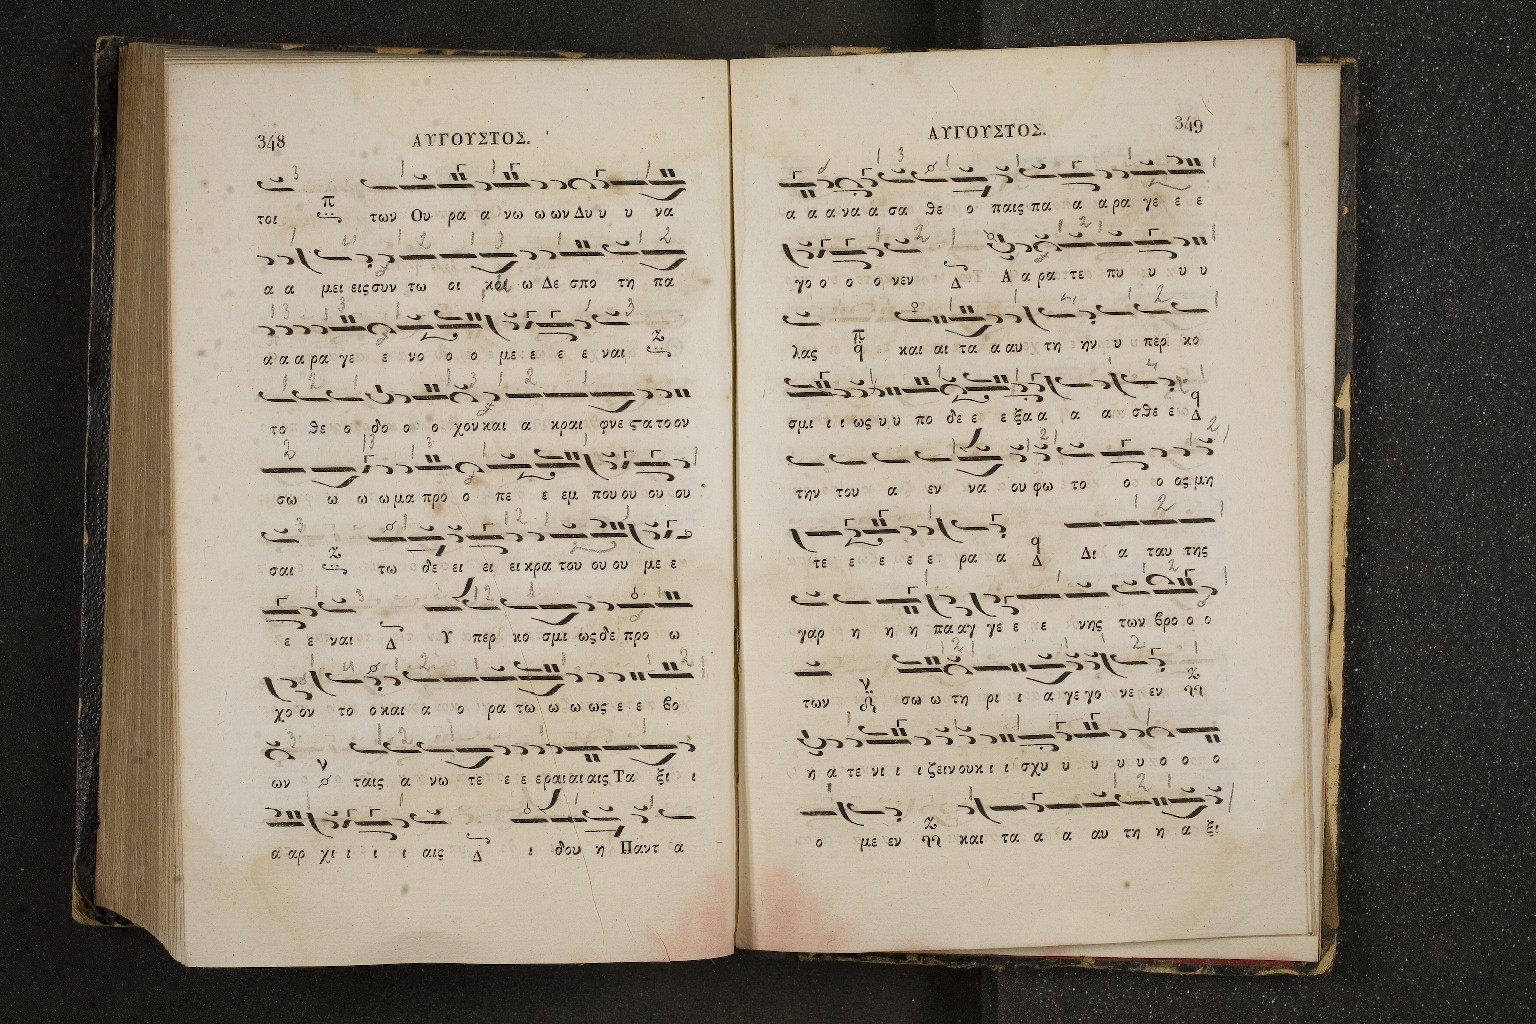 348 ΑΥΓΟΥΣΤΟΣ.
τοι π των Ου ρα α νω ω ων Δυ υ υ να
α α μει εις συν τω οι κοι ω Δε σπο τη πα
α α α ρα γε ε νο ο ο με ε ε ε ναι ζ
το θε ο δο ο ο χον και α κραι φνε ςα το ον
σω ω ω ω μα προ ο πε ε εμ που ου ου ου
σαι ζ τω δε ει ει ει κρα του ου ου με ε
ε ε ναι Δ Υ περ κο σμι ως δε προ ω
χο ον το ο και α ο ρα τω ω ω ως ε ε βο
ων ν ταις α νω τε ε ε εραι αι αις Τα ξι ι
α αρ χι ι ι ι αις Δ ι δου η Παντ α
ΑΥΓΟΥΣΤΟΣ. 349
α α α να α σα θε ο παις πα α α ρα γε ε ε
γο ο ο ο νεν Δ Α α ρα τε πυ υ υ υ
λας π q και αι τα α αυ τη ην υ περ κο
σμι ι ι ως υ υ πο δε ε ε ξα α α α σθε ε q Δ
την του α εν να ου φω το ο ο ος μη
τε ε ε ε ε ρα α q Δ Δι α ταυ της
γαρ η η η πα αγ γε ε ε νης των βρο ο ο
των ν σω ω τη ρι ι α γε γο νε εν ζ
η α τε νι ι ι ζειν ουκ ι ι σχυ υ υ υ υ ο ο ο
ο με εν ζ και τα α α α αυ τη η α ξι